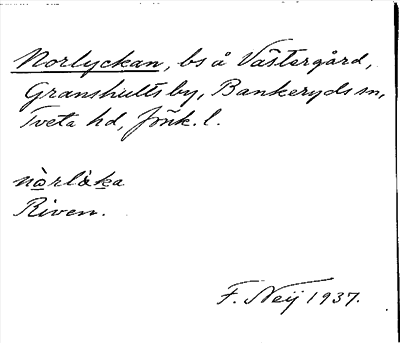 Norlyckan, bs å Västergård,
Granshults by, Bankeryds sn,
Tveta hd, Jönk. l.
nòrlỳka
Riven.
F. Neij 1937.